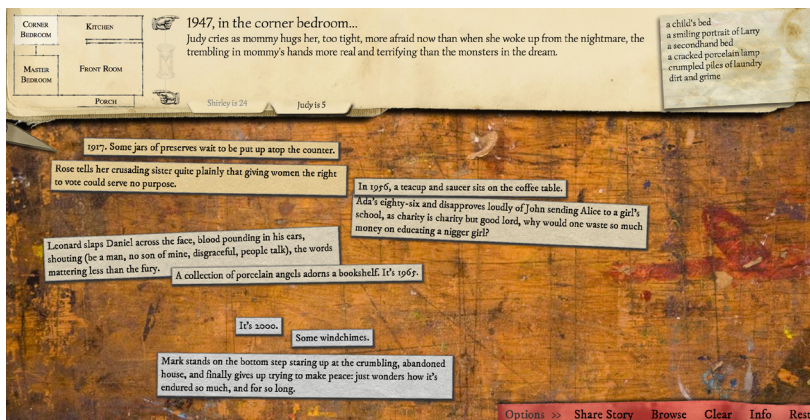 CORNER
BEDROOM
KITCHEN
MASTER
BEDROOM
FRONT ROOM
PORCH
1947, in the corner bedroom...
Judy cries as mommy hugs her, too tight, more afraid now than when she woke up from the nightmare, the
trembling in mommy's hands more real and terrifying than the monsters in the dream.
Shirley is 24
Judy is 5
a child's bed
a smiling portrait of Larry
a secondhand bed
a cracked porcelain lamp
crumpled piles of laundry
dirt and grime
1917. Some jars of preserves wait to be put up atop the counter.
Rose tells her crusading sister quite plainly that giving women the right
to vote could serve no purpose.
In 1956, a teacup and saucer sits on the coffee table.
Ada's eighty-six and disapproves loudly of John sending Alice to a girl's
school, as charity is charity but good lord, why would one waste so much
money on educating a nigger girl?
Leonard slaps Daniel across the face, blood pounding in his ears,
shouting (be a man, no son of mine, disgraceful, people talk), the words
mattering less than the fury.
A collection of porcelain angels adorns a bookshelf. It's 1965.
It's 2000.
Some windchimes.
Mark stands on the bottom step staring up at the crumbling, abandoned
house, and finally gives up trying to make peace: just wonders how it's
endured so much, and for so long.
Options >> Share Story Browse Clear Info Res